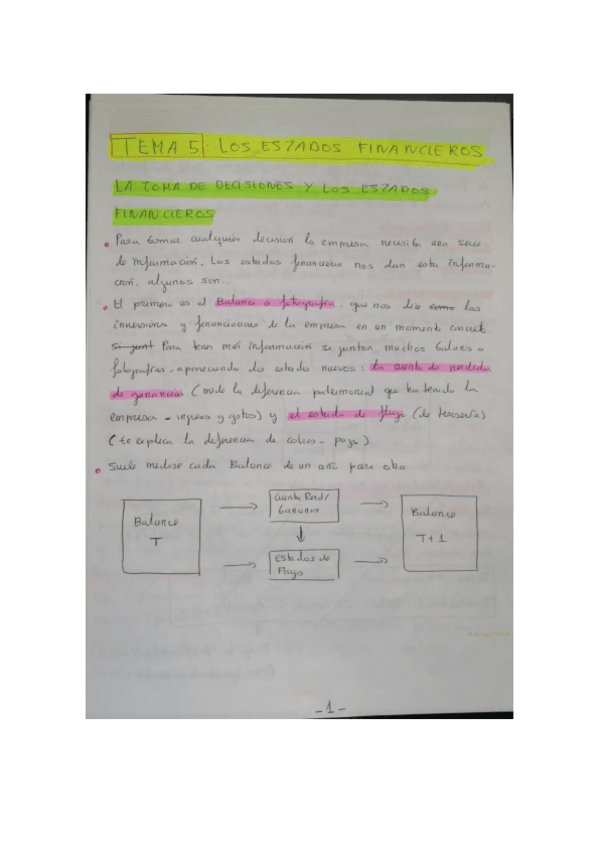 TEMA 5: LOS ESTADOS FINANCIEROS
LA TOMA DE DECISIONES Y LOS ESTADOS
FINANCIEROS
Para tomar cualquier decisión la empresa necesita una serie
de información. Los estados financieros nos dan esta informa-
ción. algunos son...
El primero es el Balance o fotografía que nos dice como las
inversiones y financiaciones de la empresa en un momento concreto.
Para tener más información se juntan muchos balances o
fotografías, apareciendo dos estados nuevos: la cuenta de perdidas
de ganancias (mide la diferencia patrimonial que ha tenido la
empresa - ingresos y gastos) y el estado de flujo (de tesorería)
(te explica la diferencia de cobros - pagos)
Suele medirse cada Balance de un año para otro
Balance
T
Cuenta Perd/
Ganancias
Estados de
Flujo
Balance
T+1
-1-